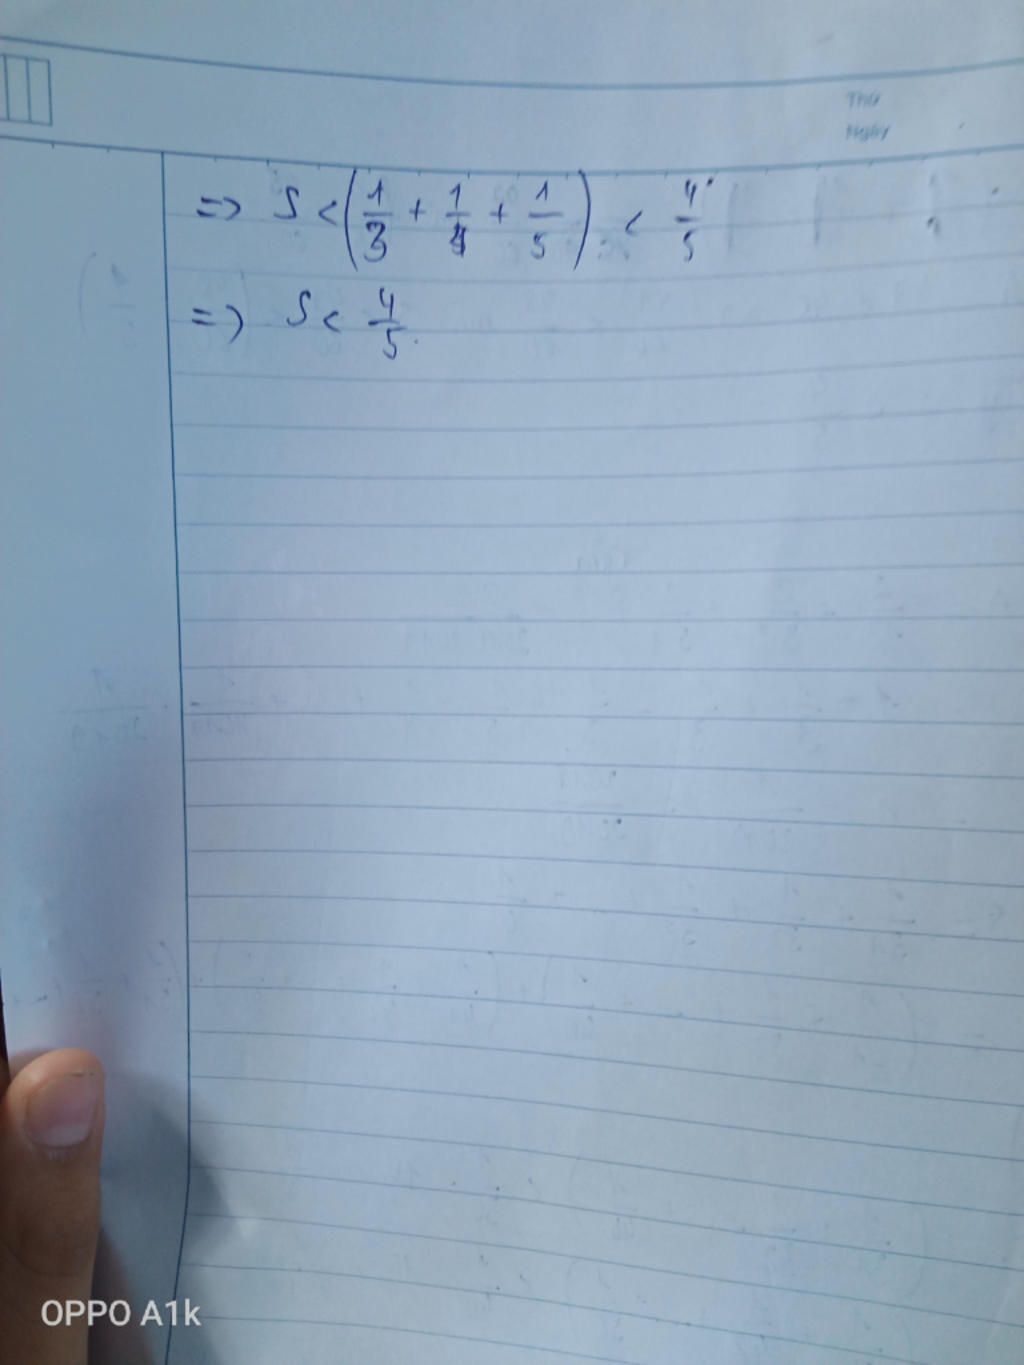 Thứ
Ngày
=> S < (1/3 + 1/4 + 1/5) < 4/5
=> S < 4/5.
OPPO A1k